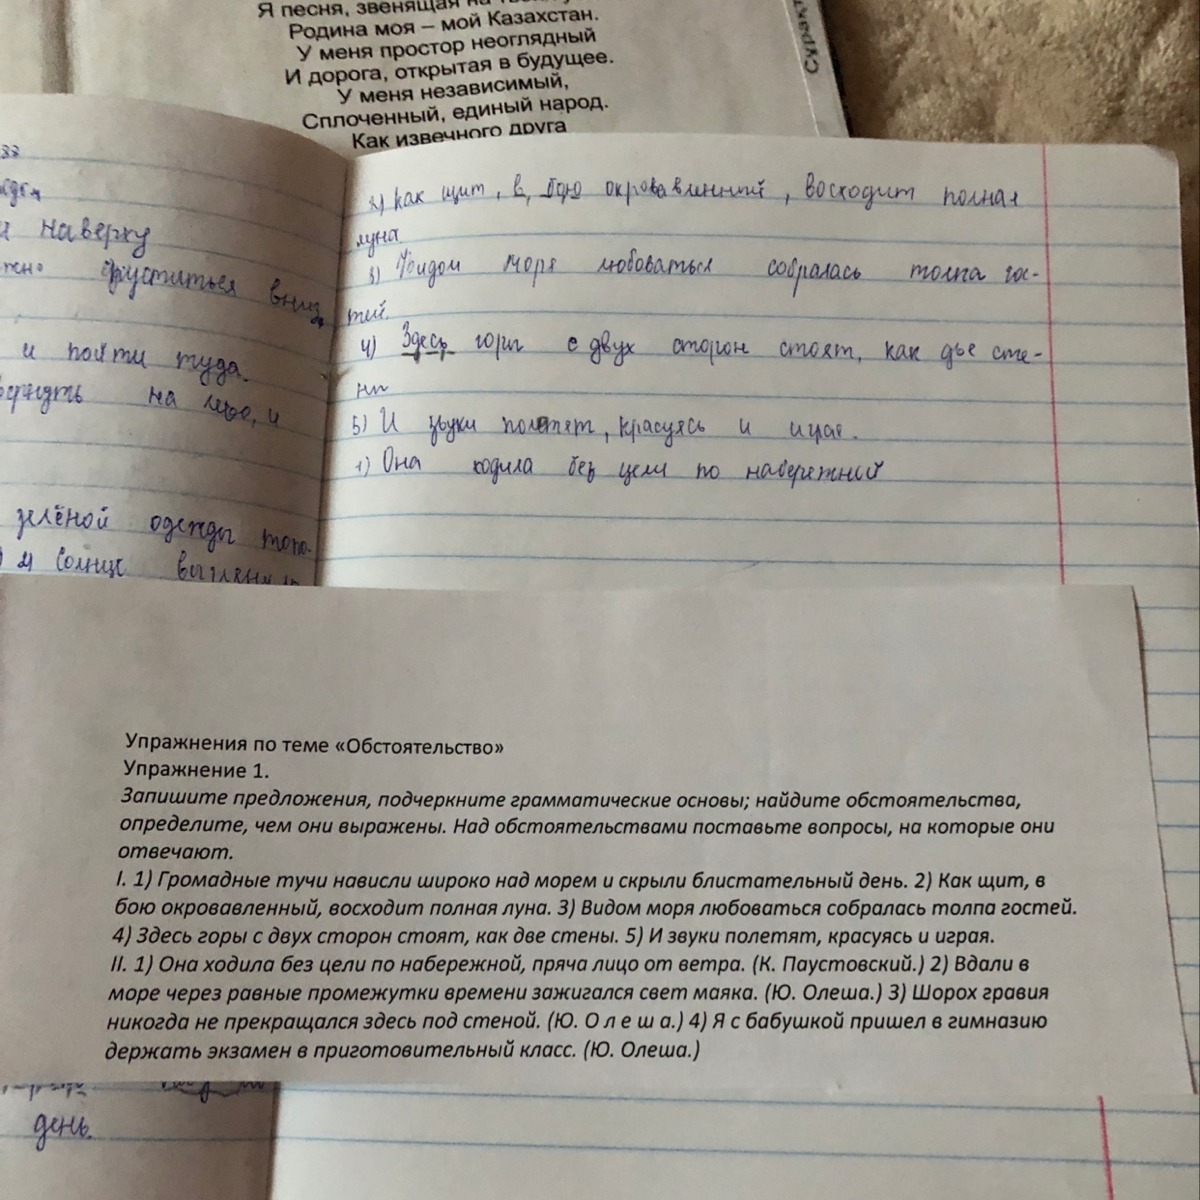 Я песня, звенящая на
Родина моя – мой Казахстан.
У меня простор неоглядный
И дорога, открытая в будущее.
У меня независимый,
Сплоченный, единый народ.
Как извечного друга
33
и наверху
вниз,
и пойти туда.
на
зелёной одежды топо-
солнце
день.
2) как щит, в бою окровавленний, восходит полная
луна
3) Видом моря любоваться собралась толпа гос-
тей.
4) Здесь горы с двух сторон стоят, как две сте-
ны
5) И звуки полетят, красуясь и играя.
1) Она ходила без цели по набережний
Упражнения по теме «Обстоятельство»
Упражнение 1.
Запишите предложения, подчеркните грамматические основы; найдите обстоятельства,
определите, чем они выражены. Над обстоятельствами поставьте вопросы, на которые они
отвечают.
I. 1) Громадные тучи нависли широко над морем и скрыли блистательный день. 2) Как щит, в
бою окровавленный, восходит полная луна. 3) Видом моря любоваться собралась толпа гостей.
4) Здесь горы с двух сторон стоят, как две стены. 5) И звуки полетят, красуясь и играя.
II. 1) Она ходила без цели по набережной, пряча лицо от ветра. (К. Паустовский.) 2) Вдали в
море через равные промежутки времени зажигался свет маяка. (Ю. Олеша.) 3) Шорох гравия
никогда не прекращался здесь под стеной. (Ю. О л е ш а.) 4) Я с бабушкой пришел в гимназию
держать экзамен в приготовительный класс. (Ю. Олеша.)